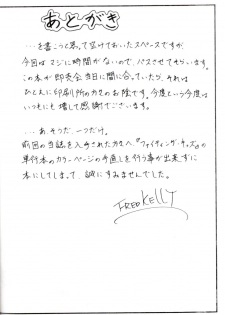 あとがき
…を書こうと思って空けておいたスペースですが、
今回はマジに時間がないので、パスさせてもらいます。
この本が即売会当日に間に合っていたら、それは
ひとえに印刷所の方々のお陰です。今度という今度は
いつもにも増して感謝でございます。
…あ、そうだ、一つだけ。
前回の当誌を入手された方々へ、『ファイティング・キッズ』の
単行本のカラーページの手直しを行う事が出来ずに
本にしてしまって、誠にすみませんでした。
FRED KELLY